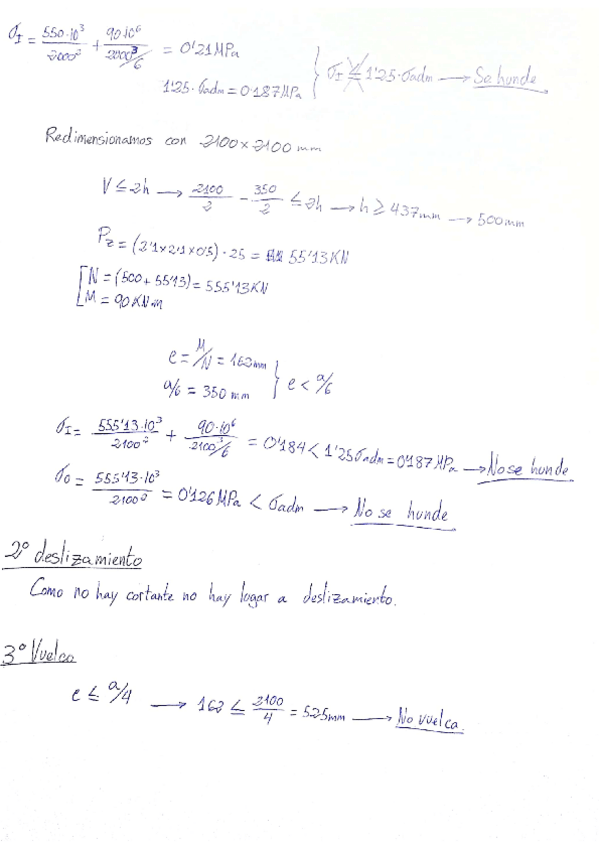 σ_I = 550·10³/2000² + 90·10⁶/(2000³/6) = 0'21 MPa
1'25·σadm = 0'187 MPa } σ_I ≤ 1'25·σadm → Se hunde
Redimensionamos con 2100×2100 mm
V ≤ 2h → 2100/2 - 350/2 ≤ 2h → h ≥ 437mm → 500mm
P_z = (2'1×2'1×0'5)·25 = 55'13 KN
N = (500 + 55'13) = 555'13 KN
M = 90 KN·m
e = M/N = 162 mm
a/6 = 350 mm } e < a/6
σ_I = 555'13·10³/2100² + 90·10⁶/(2100³/6) = 0'184 < 1'25 σadm = 0'187 MPa → No se hunde
σ_0 = 555'13·10³/2100² = 0'126 MPa < σadm → No se hunde
2º deslizamiento
Como no hay cortante no hay lugar a deslizamiento.
3º Vuelco
e ≤ a/4 → 162 ≤ 2100/4 = 525mm → No vuelca.